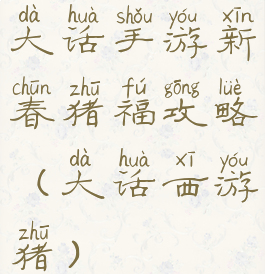 dà huà shǒu yóu xīn
大话手游新
chūn zhū fú gōng lüè
春猪福攻略
dà huà xī yóu
(大话西游
zhū
猪)